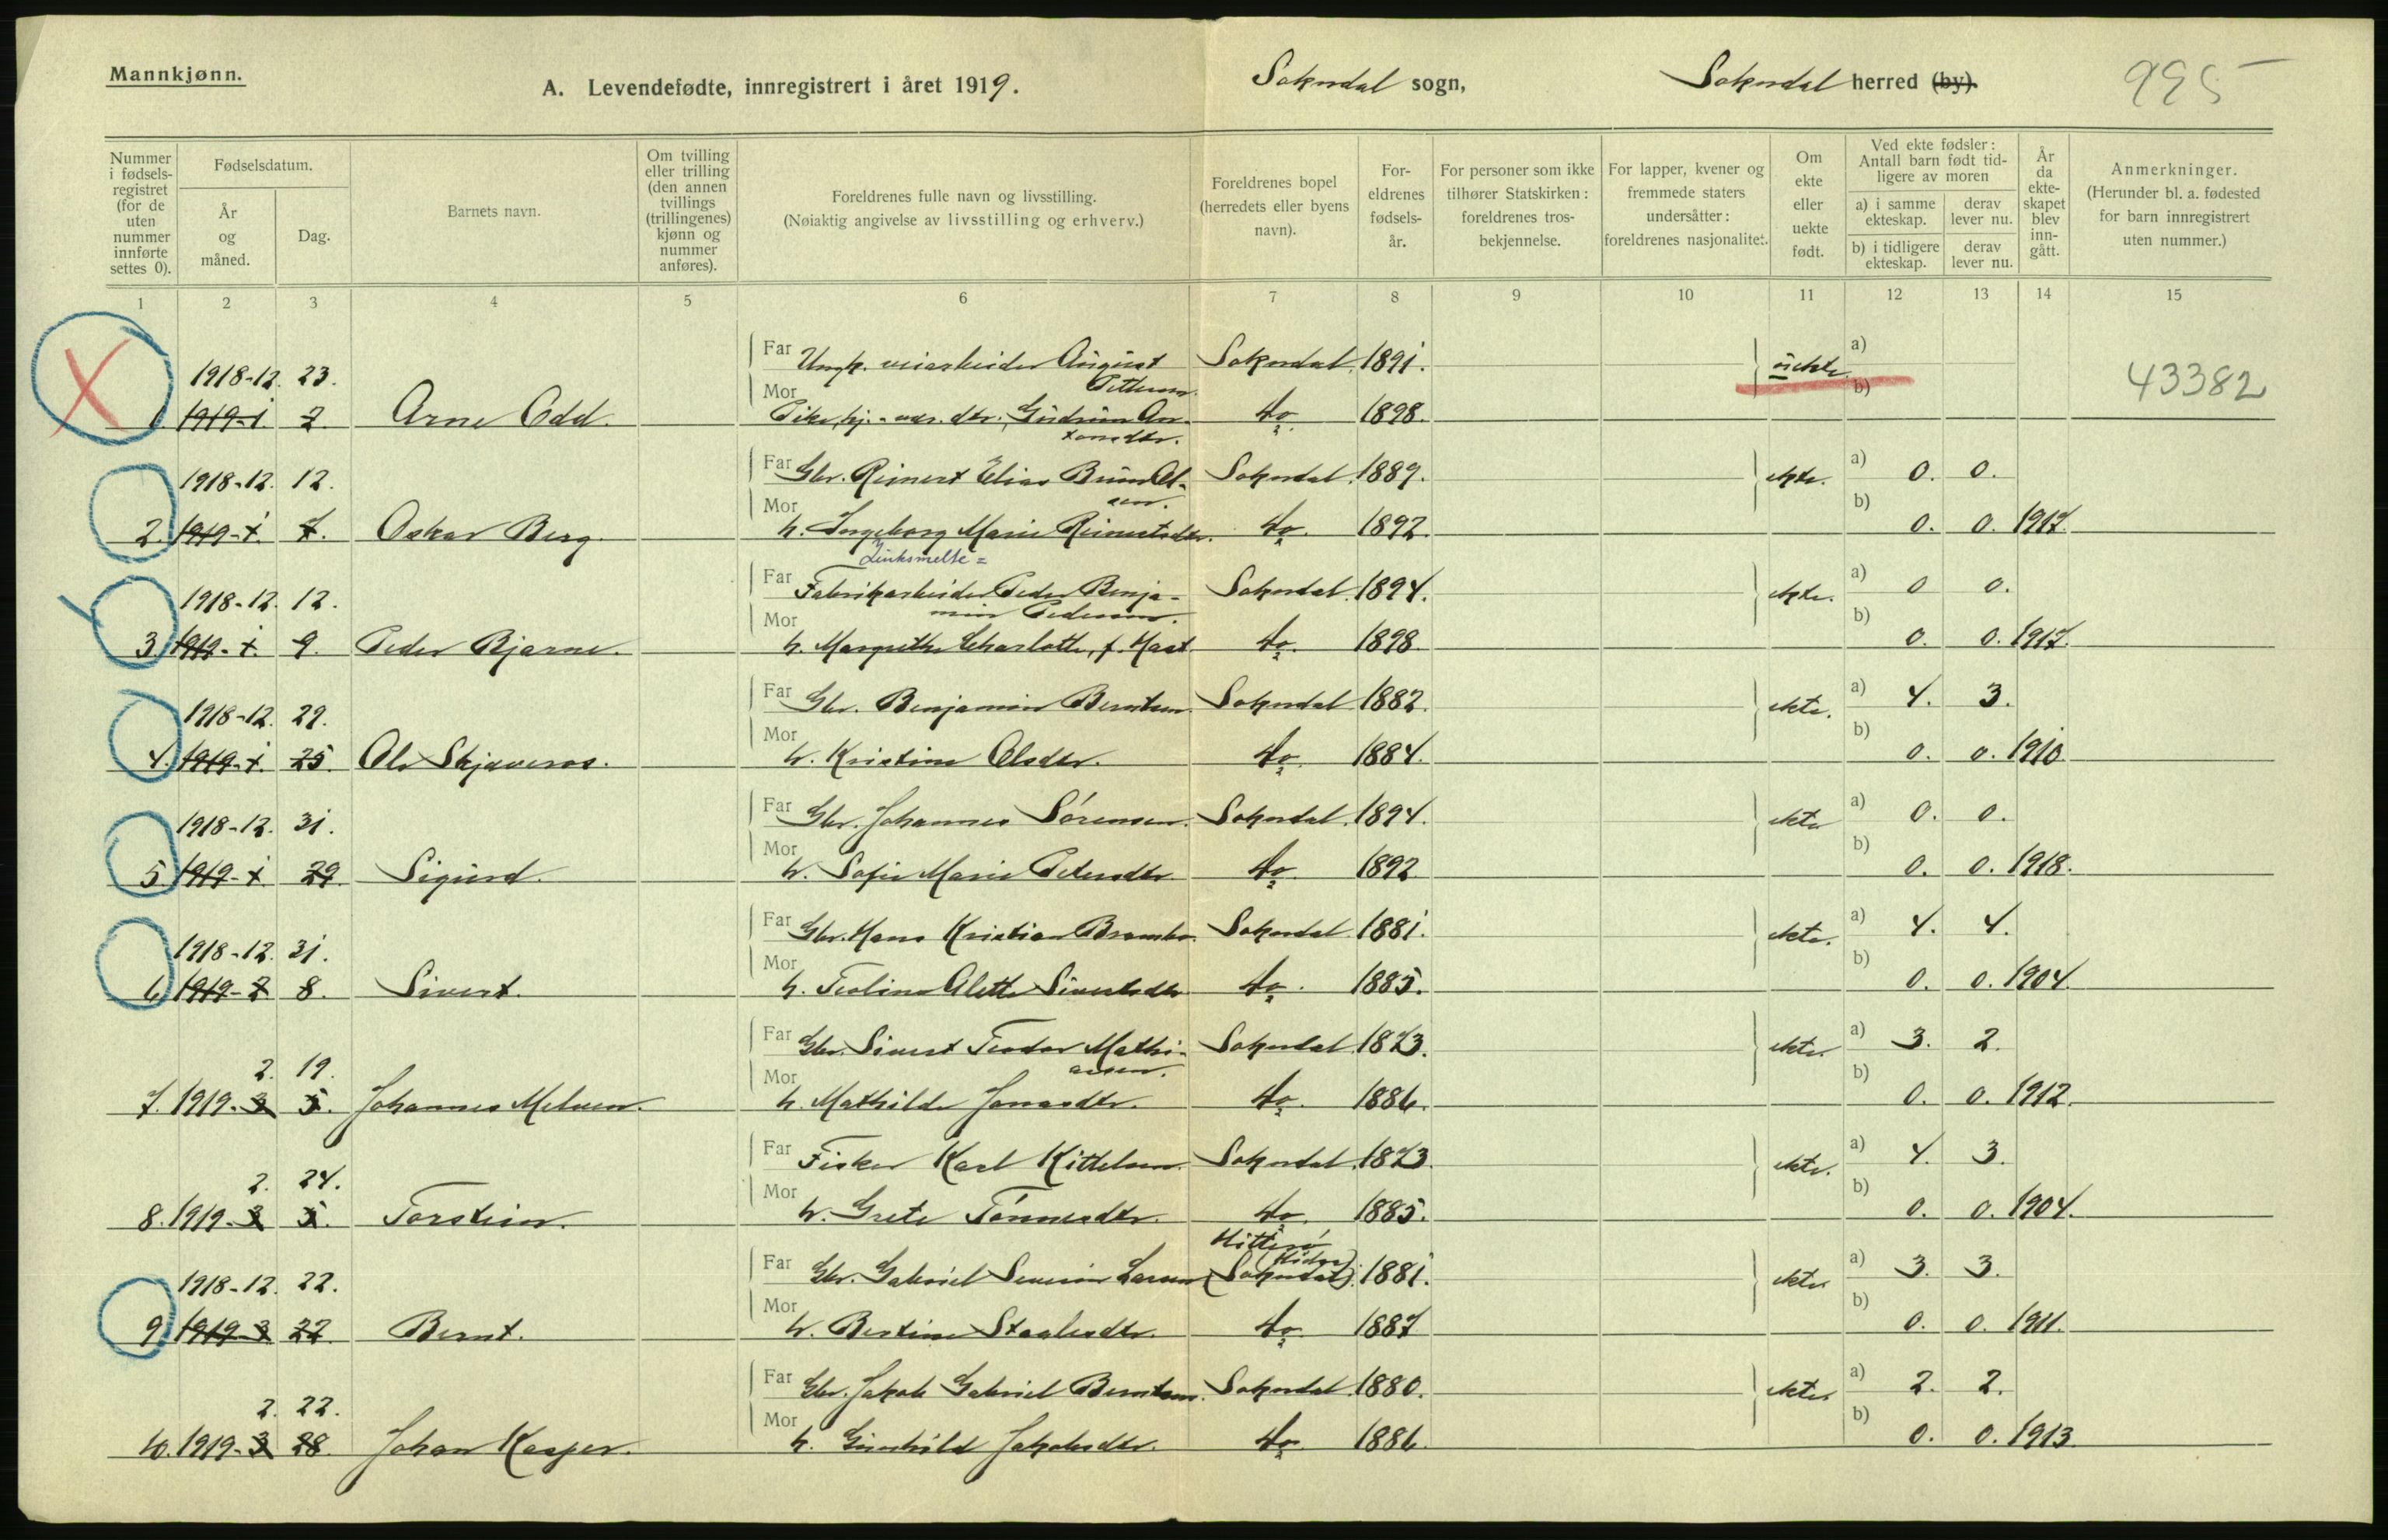 Mannkjønn.
A. Levendefødte, innregistrert i året 1919.
Sokndal sogn,
Sokndal herred (by).
995
Nummer i fødselsregistret (for de uten nummer innførte settes 0).
Fødselsdatum.
År og måned.
Dag.
Barnets navn.
Om tvilling eller trilling (den annen tvillings (trillingenes) kjønn og nummer anføres).
Foreldrenes fulle navn og livsstilling.
(Nøiaktig angivelse av livsstilling og erhverv.)
Foreldrenes bopel (herredets eller byens navn).
For-eldrenes fødsels-år.
For personer som ikke tilhører Statskirken: foreldrenes tros-bekjennelse.
For lapper, kvener og fremmede staters undersåtter: foreldrenes nasjonalitet.
Om ekte eller uekte født.
Ved ekte fødsler: Antall barn født tid-ligere av moren
a) i samme ekteskap.
derav lever nu.
b) i tidligere ekteskap.
derav lever nu.
År da ekte-skapet blev inn-gått.
Anmerkninger.
(Herunder bl. a. fødested for barn innregistrert uten nummer.)
1 2 3 4 5 6 7 8 9 10 11 12 13 14 15
1918-12. 23. Far Ungk. veiarbeider August Sokndal 1891. uekte. a)
Pettersen.
1. 1919-1 2. Arne Odd. Mor Pike, hj.-vær. dtr., Gudrun An- do 1898. b) 43382
tonsdtr.
1918-12. 12. Far Gbr. Reinert Elias Brun Ol- Sokndal. 1889. ekte. a) 0. 0.
sen.
2. 1919-1. 7. Oskar Berg. Mor h. Ingeborg Marie Reinertsdtr. do. 1892. b) 0. 0. 1917.
Zinksmelte=
1918-12. 12. Far Fabrikarbeider Peder Benja- Sokndal. 1894. ekte. a) 0 0.
min Pedersen.
3. 1919-1. 9. Peder Bjarne. Mor h. Margrethe Charlotte, f. Hast do. 1898. b) 0. 0. 1917.
1918-12. 29. Far Gbr. Benjamin Berntsen. Sokndal 1882. ekte. a) 4. 3.
4. 1919-1. 25. Ole Skjæveros. Mor h. Kristine Olsdtr. do. 1884. b) 0. 0. 1910.
1918-12. 31. Far Gbr. Johannes Sørensen. Sokndal. 1894. ekte a) 0. 0.
5. 1919-1. 29. Sigurd. Mor h. Sofie Marie Pedersdtr. do. 1892. b) 0. 0. 1918.
1918-12. 31. Far Gbr. Hans Kristian Brambo. Sokndal 1881. ekte. a) 4. 4.
6. 1919-2 8. Sivert. Mor h. Teoline Alette Sivertsdtr. do. 1885. b) 0. 0. 1904.
2. 19. Far Gbr. Sivert Teodor Mathi- Sokndal 1873. ekte. a) 3. 2.
asen.
7. 1919-3 5. Johannes Melvin. Mor h. Mathilde Jonasdtr. do. 1886. b) 0. 0. 1912.
2. 24. Far Fisker Karl Kittelsen. Sokndal. 1873. ekte. a) 4. 3.
8. 1919-3 5. Torstein. Mor h. Grete Tønnesdtr. do. 1885. b) 0. 0. 1904.
Hitterø
(Hidra)
1918-12. 22. Far Gbr. Gabriel Severin Larsen (Sokndal). 1881. ekte a) 3. 3.
9. 1919-3 22. Bernt. Mor h. Bertine Staalesdtr. do. 1887. b) 0. 0. 1911.
2. 22. Far Gbr. Jakob Gabriel Berntsen. Sokndal. 1880. ekte. a) 2. 2.
10. 1919-3 28. Johan Kasper. Mor h. Gunhild Jakobsdtr. do. 1886. b) 0. 0. 1913.